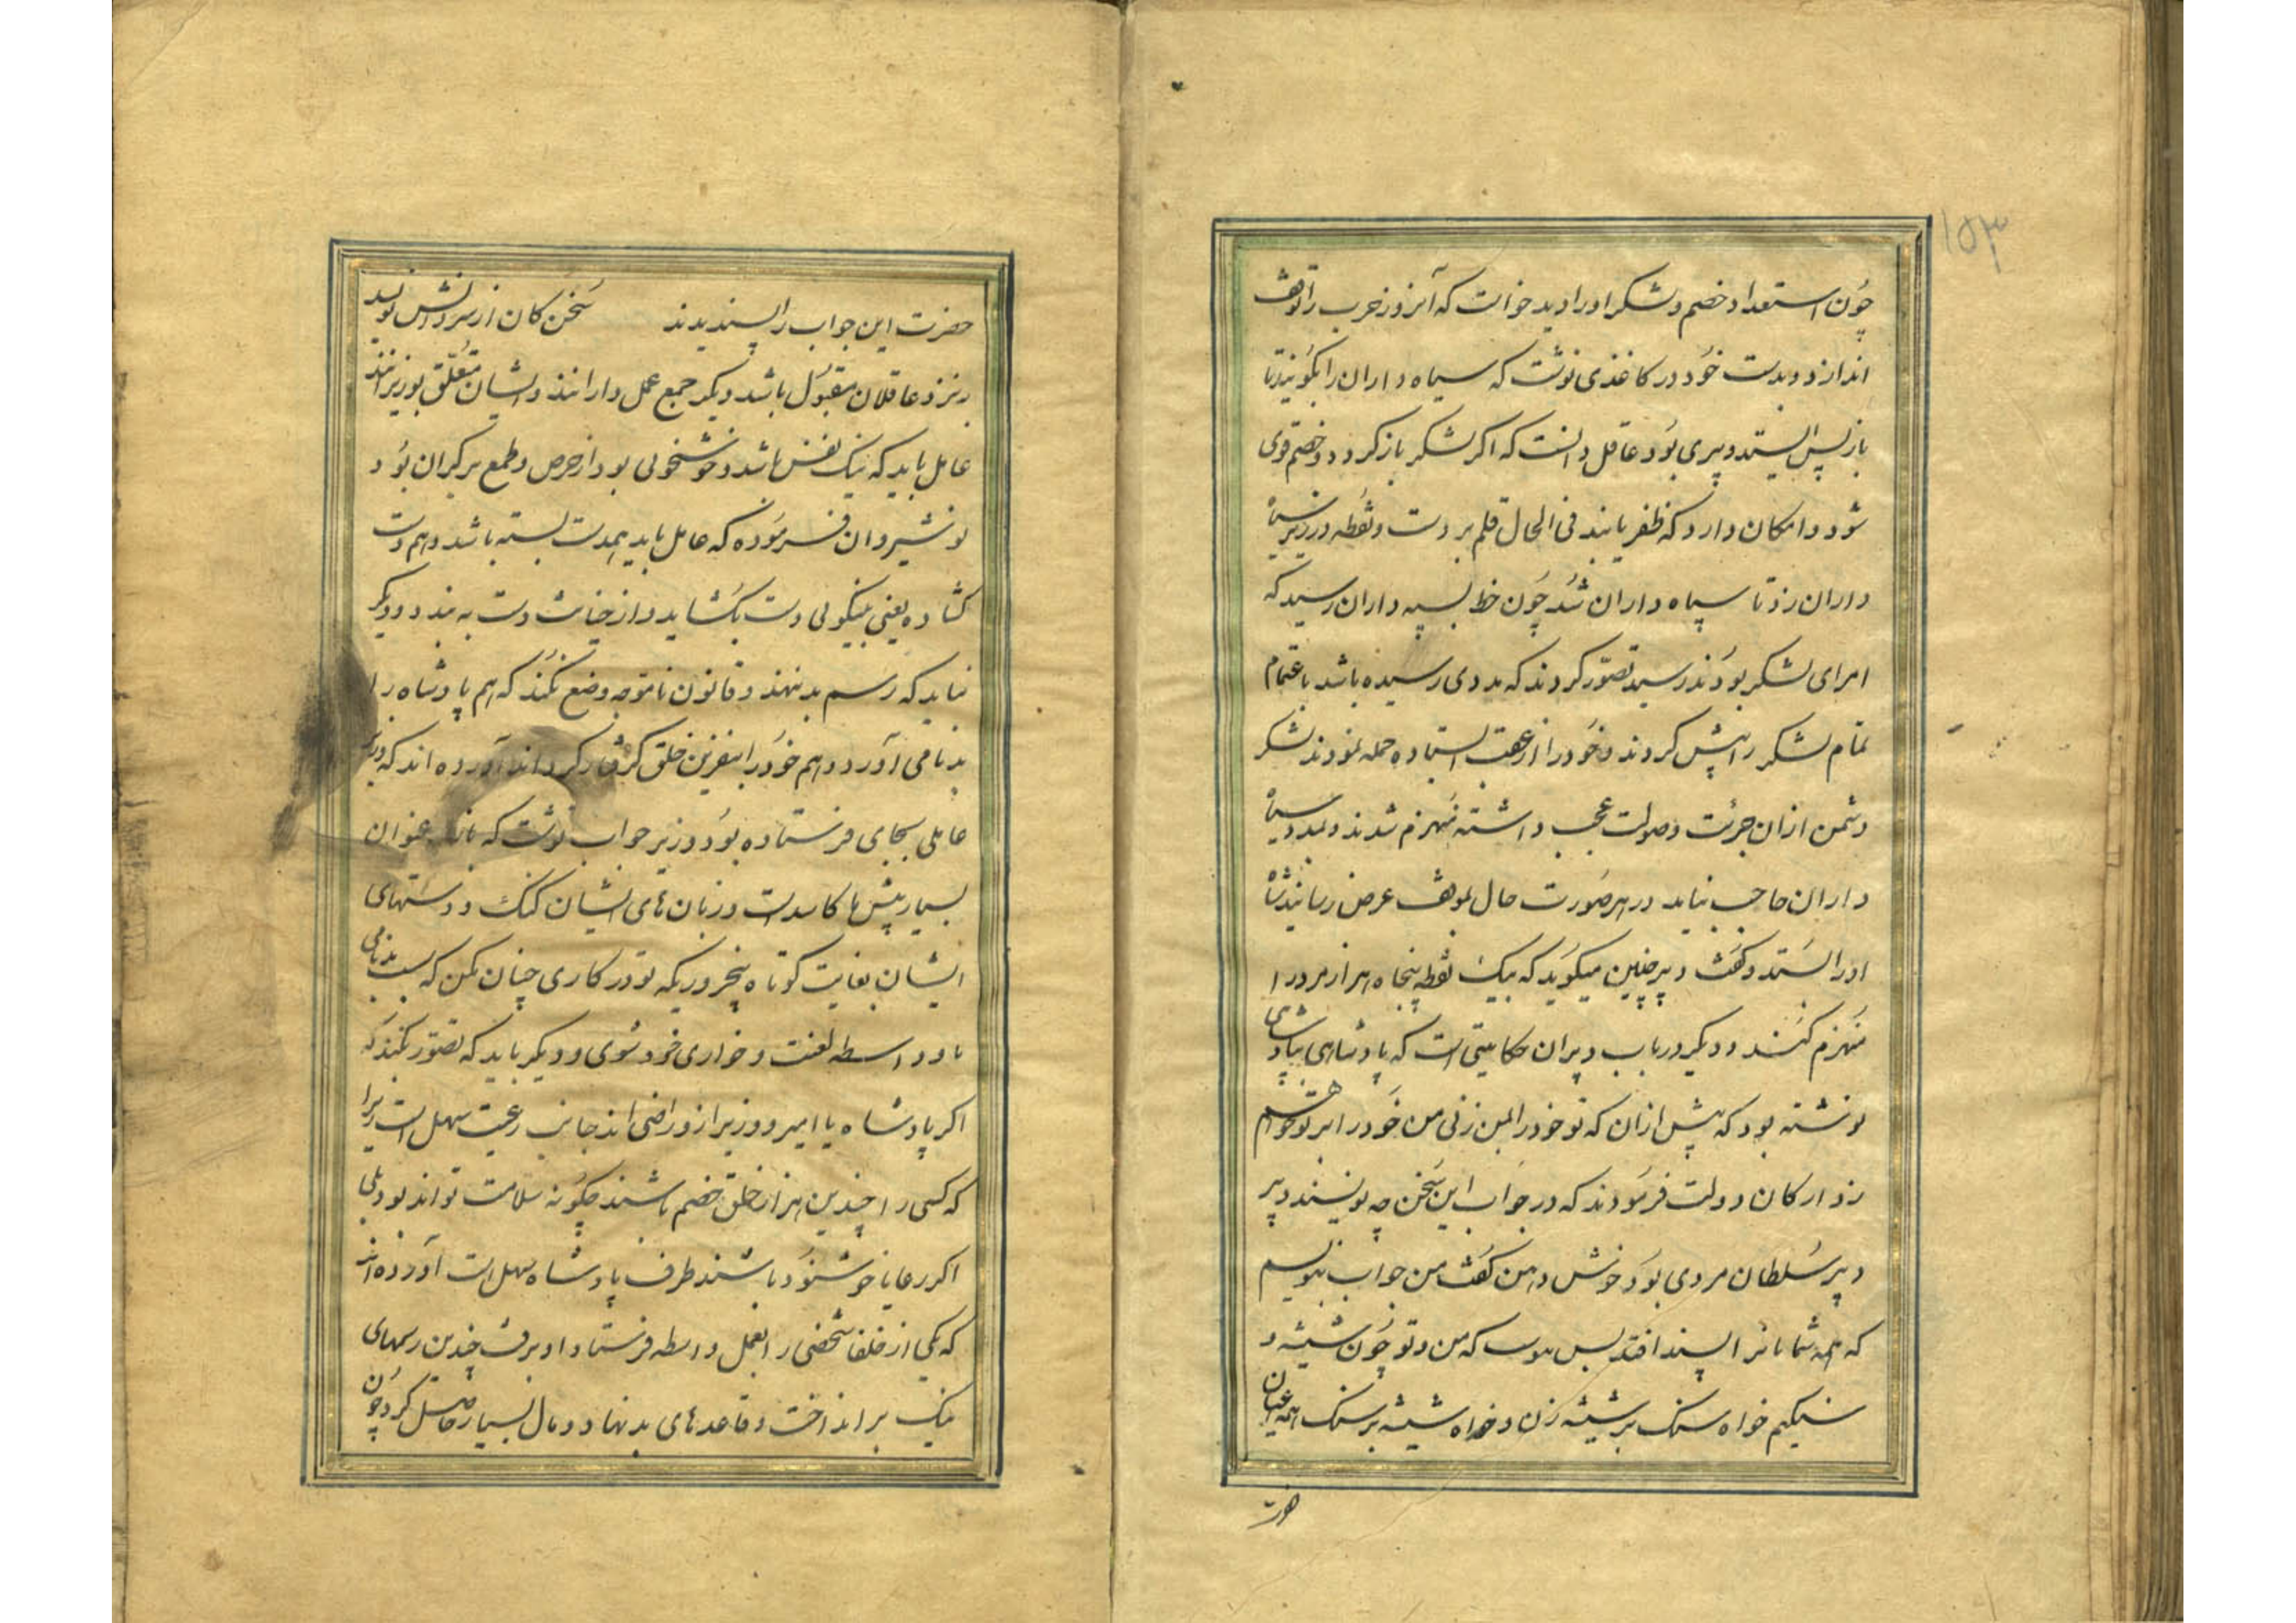 ۱۵۳
چون استعداد خصم و لشکر او را دید خواست که آنروز حرب را توقف
اندازد و بدست خود در کاغذی نوشت که سپاه داران را بگوئید تا
باز پس ایستند دبیری بود عاقل دانست که اکر لشکر باز کردد و خصم قوی
شود و امکان دارد که ظفر یابند فی الحال قلم بر دست و نقطه در زیر سپاه
داران زد تا سپاه داران شد چون خط بسپه داران رسید که
امرای لشکر بودند رسید تصور کردند که مددی رسیده باشد باعتماد
تمام لشکر را پیش کردند و خود را از عقب استاده حمله نمودند لشکر
دشمن ازان جرئت و صولت عجب داشته منهزم شدند و بمدد سپاه
داران حاجب نیاید در هر صورت حال بموقف عرض رسانیدند شاه
او را بستد و کفت دبیر چنین میکوید که بیک نقطه پنجاه هزار مرد را
منهزم کنند و دیکر در باب دبیران حکایتی است که پادشاهی بپادشاهی
نوشته بود که پیش ازان که تو خود را بمن زنی من خود را بر تو خواهم
زد ارکان دولت فرمودند که در جواب این سخن چه نویسند دبیر
دبیر سلطان مردی بود خوش ذهن کفت من جواب بنویسم
که همه شمایان را پسند افتد پس نوشت که من و تو چون شیشه و
سنکیم خواه سنک بر شیشه زن و خواه شیشه بر سنک همه اعیان
حضرت
حضرت این جواب را پسندیدند سخن کان از سر دانش نویسد
بنزد عاقلان مقبول باشد دیکر جمیع عمل دارانند و ایشان متعلق بوزیر اند
عامل باید که نیک نفس باشد و خوشخوئی بود از حرص و طمع بر کران بود
نوشیروان فرموده که عامل باید هم دست بسته باشد و هم دست
کشاده یعنی بنیکوئی دست بکشاید و از خیانت دست به بندد و دیکر
نباید که رسم بد نهند و قانون ناموجه وضع نکند که هم پادشاه را
بدنامی آورد و هم خود را بنفرین خلق کرفتار کرداند آورده اند که وزیر
عاملی بجای فرستاده بود وزیر جواب نوشت که عنوان
بسیار پیش ما کاسدست و زبان های ایشان کنک و دستهای
ایشان بغایت کوتاه بنخرد ریکه تو در کاری چنان مکن که سبب بدنامی
ما و واسطه لعنت و خواری خود شوی و دیکر باید که تصور نکند که
اکر پادشاه یا امیر و وزیر از و راضی اند جانب رعیت سهل است زیرا
که کسی را چندین هزار خلق خصم باشند چکونه سلامت تواند بود بلی
اکر رعایا خوشنود باشند طرف پادشاه سهل است آورده اند
که یکی از خلفا شخصی را بعمل واسطه فرستاد او برفت چندین رسمهای
نیک بر انداخت و قاعدهای بد نهاد و مال بسیار حاصل کرد چون